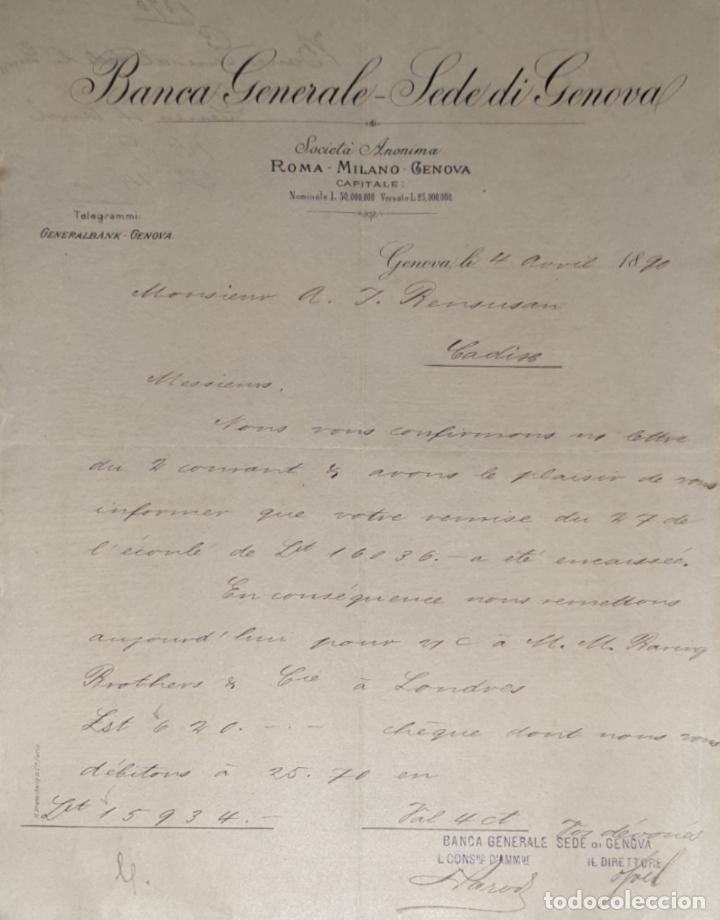 Banca Generale - Sede di Genova
Società Anonima
ROMA - MILANO - GENOVA
CAPITALE:
Nominale L. 50,000,000 Versato L. 25,000,000
Telegrammi:
GENERALBANK - GENOVA.
Genova, li 4 avril 1890
Monsieur A. J. Bensusan
Cadix
Messieurs.
Nous vous confirmons ns lettre
du 2 courant & avons le plaisir de vous
informer que votre remise du 27 de
l'écoulé de Lit 16036.- a été encaissée.
En conséquence nous remettons
aujourd'hui pour v/c à M. M. Baring
Brothers & Cie à Londres
Lst 620. - . - chèque dont nous vous
débitons à 25.70 en
Lit 15934.- Val 4 ct Vos dévoués
BANCA GENERALE SEDE DI GENOVA
IL DIRETTORE
todocoleccion